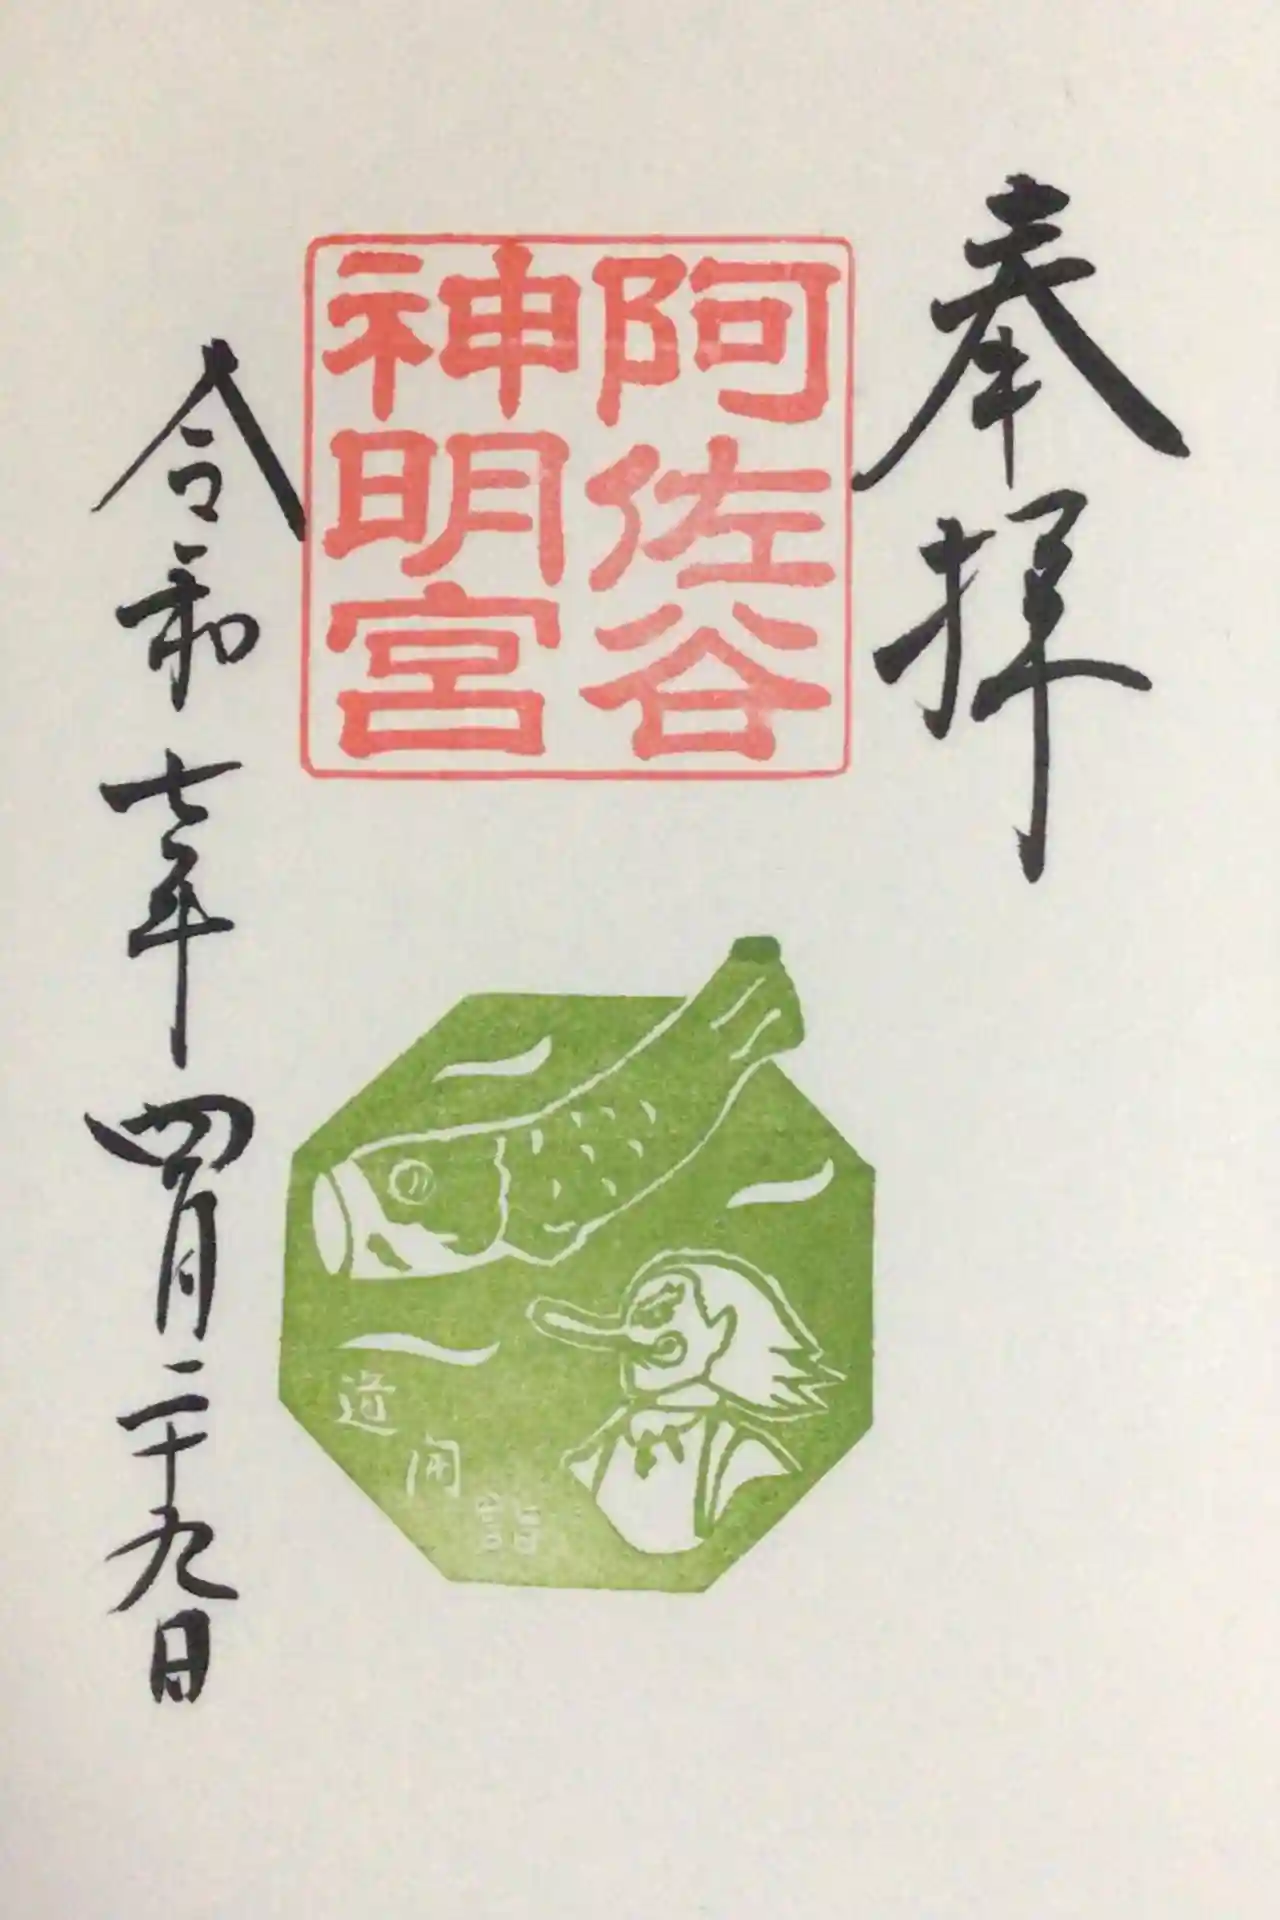 奉拝
阿佐谷
神明宮
道開詣
令和七年四月二十九日